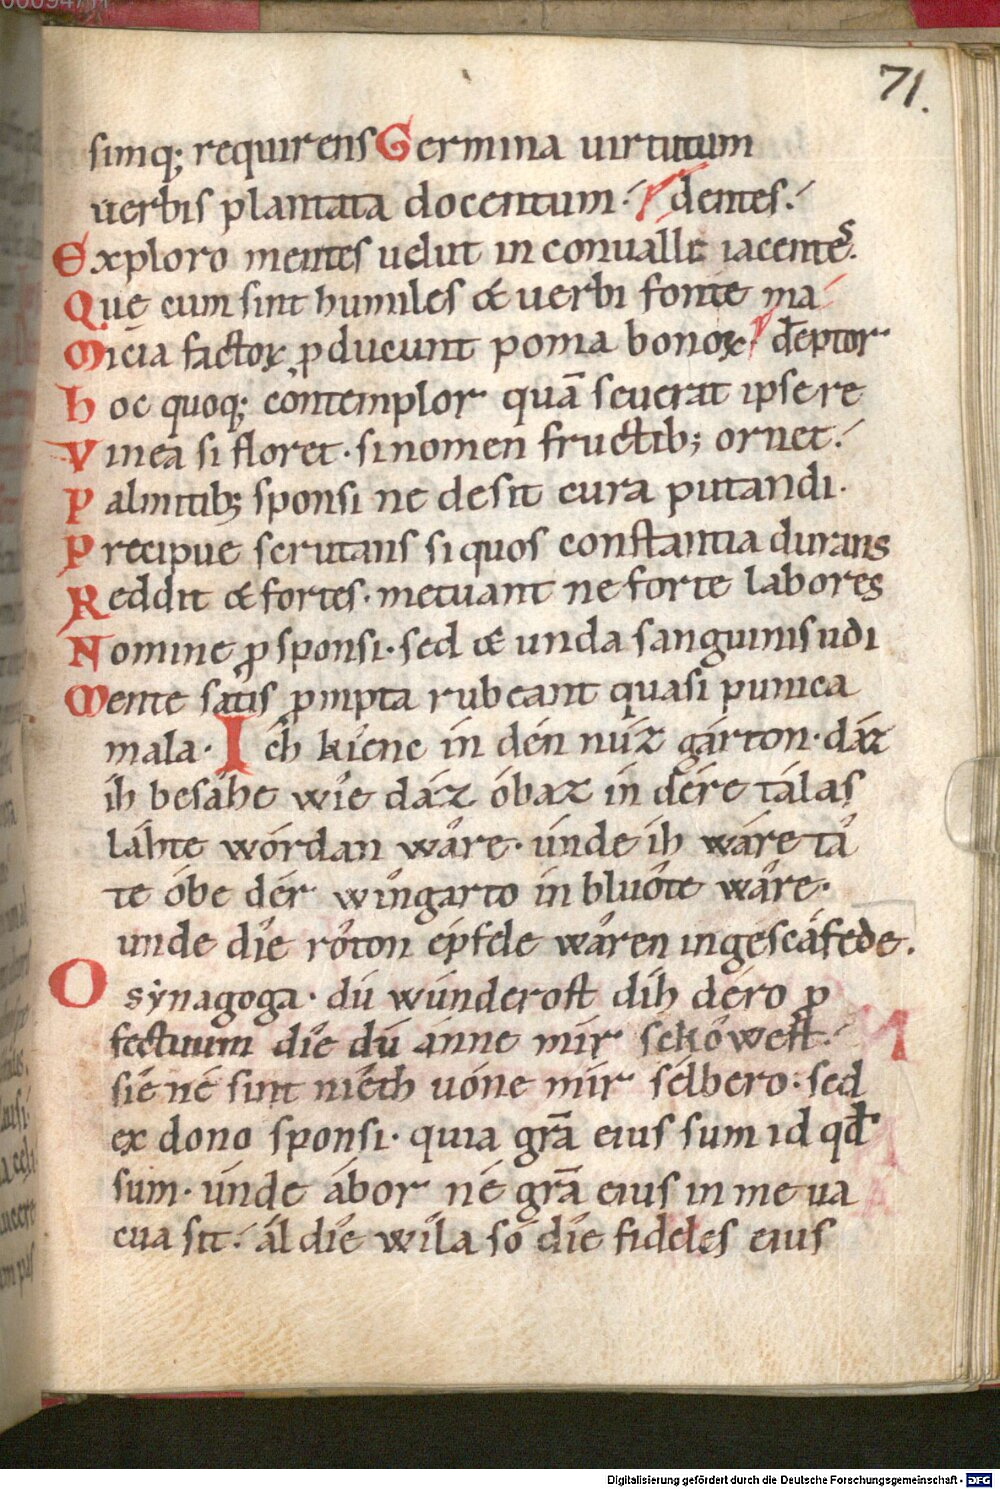 71.
simq; requirens Germina uirtutum
uerbis plantata docentum. dentes.
Exploro mentes uelut in conualle iacentes.
Quę cum sint humiles & uerbi fonte ma
Micia factoꝝ ꝓducunt poma bonoꝝ. dēptor
hoc quoq; contemplor quā seuerat ipse re
Vinea si floret. si nomen fructib; ornet.
Palmitib; sponsi ne desit cura putandi.
Precipue scrutans si quos constantia durans
Reddit & fortes. metuant ne forte labores
Nomine ꝓ sponsi. sed & unda sanguinis udi
Mente satis ꝓmpta rubeant quasi punica
mala. Ich kiene in dén núz gárton. dáz
ih besáhe wíe dáz óbaz in dére tálas
láhte wórdan wâͦre. únde ih wáre tâͦ
te óbe dér wîngarto in bluͦôte wâͦre.
unde dîe rôͦton épfele wâͦren ingescáfede.
O synagoga. dú wúnderost dih déro ꝓ
fectuum dîe dú ánne mir sekôͦwest.
sie né sint niéth uóne mir sélbero. sed
ex dono sponsi. quia grā eius sum id qđ
sum. únde ábor né grā eius in me ua
cua sit. ál dîe wîla só dîe fideles eius
Digitalisierung gefördert durch die Deutsche Forschungsgemeinschaft - DFG